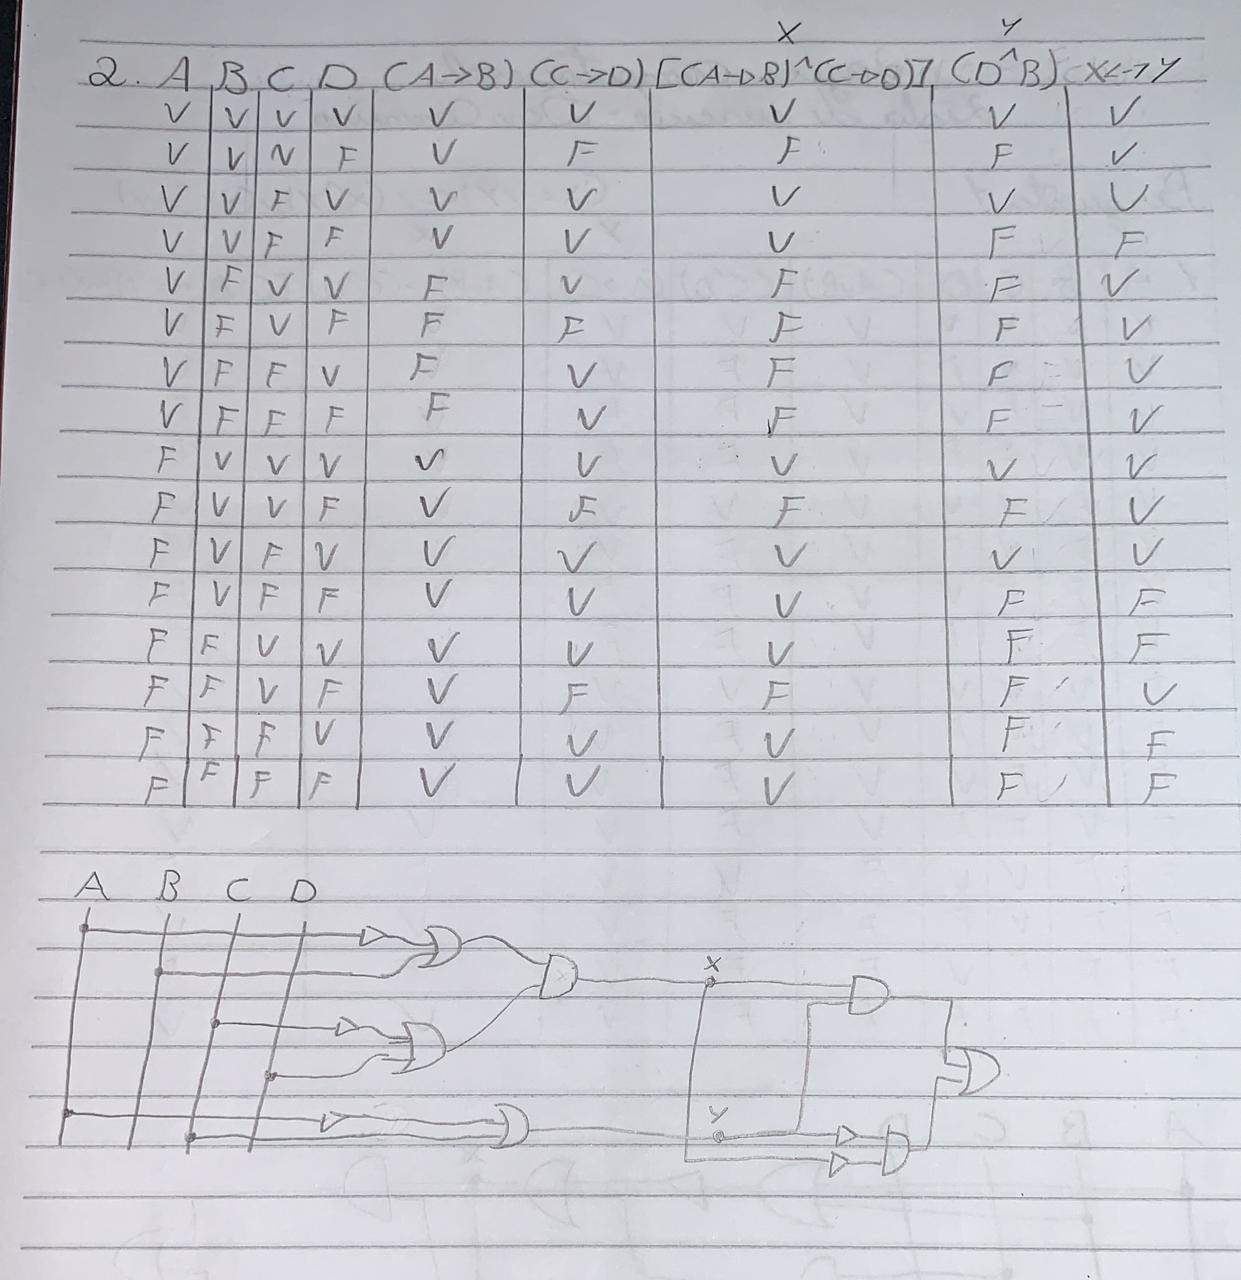 X Y
2. A B C D (A→B) (C→D) [(A→B)^(C→D)] (D^B) X<->Y
V V V V V V V V V
V V V F V F F F V
V V F V V V V V V
V V F F V V V F F
V F V V F V F F V
V F V F F F F F V
V F F V F V F F V
V F F F F V F F V
F V V V V V V V V
F V V F V F F F V
F V F V V V V V V
F V F F V V V F F
F F V V V V V F F
F F V F V F F F V
F F F V V V V F F
F F F F V V V F F
A B C D
X
Y